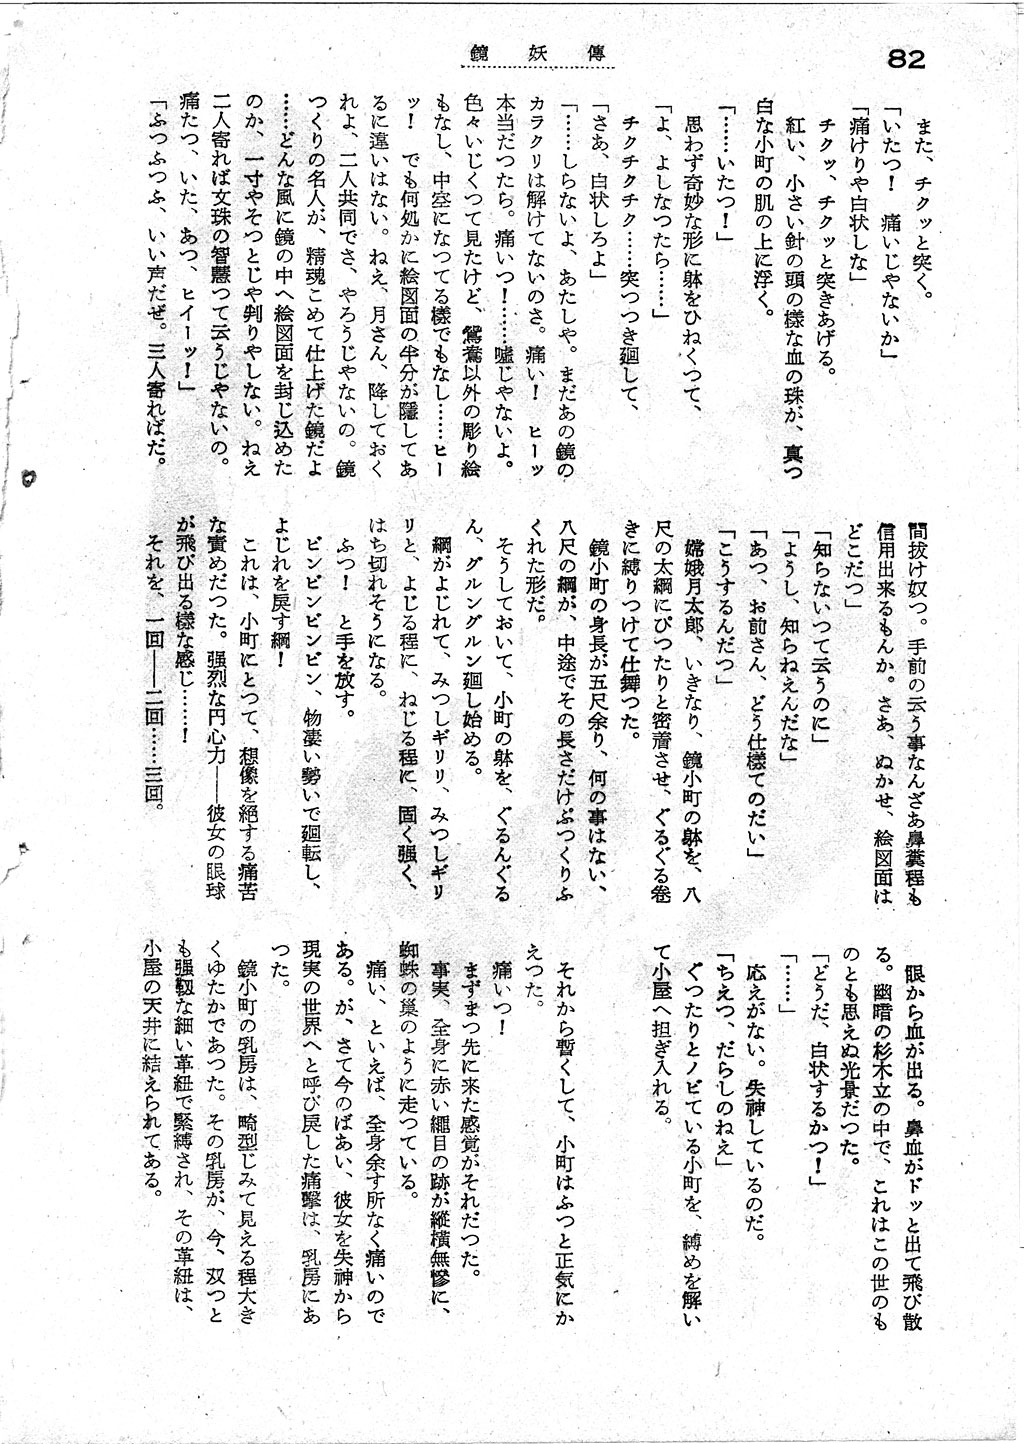 82
鏡妖傳
また、チクッと突く。
「いたつ！　痛いじゃないか」
「痛けりや白状しな」
チクッ、チクッと突きあげる。
紅い、小さい針の頭の様な血の珠が、真つ
白な小町の肌の上に浮く。
「……いたつ！」
思わず奇妙な形に躰をひねくつて、
「よ、よしなつたら……」
チクチクチク……突つつき廻して、
「さあ、白状しろよ」
「……しらないよ、あたしや。まだあの鏡の
カラクリは解けてないのさ。痛い！　ヒーッ
本当だつたら。痛いつ！……嘘じゃないよ。
色々いじくつて見たけど、鴛鴦以外の彫り絵
もなし、中空になつてる樣でもなし……ヒー
ッ！　でも何処かに絵図面の半分が隱してあ
るに違いはない。ねえ、月さん、降しておく
れよ、二人共同でさ、やろうじゃないの。鏡
つくりの名人が、精魂こめて仕上げた鏡だよ
……どんな風に鏡の中へ絵図面を封じ込めた
のか、一寸やそつとじゃ判りやしない。ねえ
二人寄れば文珠の智慧つて云うじゃないの。
痛たつ、いた、あつ、ヒイーッ！」
「ふつふつふ、いい声だぜ。三人寄ればだ。
間拔け奴つ。手前の云う事なんざあ鼻糞程も
信用出来るもんか。さあ、ぬかせ、絵図面は
どこだつ」
「知らないつて云うのに」
「ようし、知らねえんだな」
「あつ、お前さん、どう仕樣てのだい」
「こうするんだつ」
嫦娥月太郎、いきなり、鏡小町の躰を、八
尺の太綱にぴつたりと密着させ、ぐるぐる巻
きに縛りつけて仕舞つた。
鏡小町の身長が五尺余り、何の事はない、
八尺の綱が、中途でその長さだけぷつくりふ
くれた形だ。
そうしておいて、小町の躰を、ぐるんぐる
ん、グルングルン廻し始める。
綱がよじれて、みつしギリリ、みつしギリ
リと、よじる程に、ねじる程に、固く强く、
はち切れそうになる。
ふつ！　と手を放す。
ビンビンビンビン、物凄い勢いで廻転し、
よじれを戻す綱！
これは、小町にとつて、想像を絶する痛苦
な責めだつた。强烈な円心力――彼女の眼球
が飛び出る樣な感じ……！
それを、一回――二回……三回。
眼から血が出る。鼻血がドッと出て飛び散
る。幽暗の杉木立の中で、これはこの世のも
のとも思えぬ光景だつた。
「どうだ、白状するかつ！」
「……」
応えがない。失神しているのだ。
「ちえつ、だらしのねえ」
ぐつたりとノビている小町を、縛めを解い
て小屋へ担ぎ入れる。
それから暫くして、小町はふつと正気にか
えつた。
痛いつ！
まずまつ先に来た感覚がそれだつた。
事実、全身に赤い繩目の跡が縦横無慘に、
蜘蛛の巣のように走つている。
痛い、といえば、全身余す所なく痛いので
ある。が、さて今のばあい、彼女を失神から
現実の世界へと呼び戻した痛擊は、乳房にあ
つた。
鏡小町の乳房は、畸型じみて見える程大き
くゆたかであつた。その乳房が、今、双つと
も强靱な細い革紐で緊縛され、その革紐は、
小屋の天井に結えられてある。